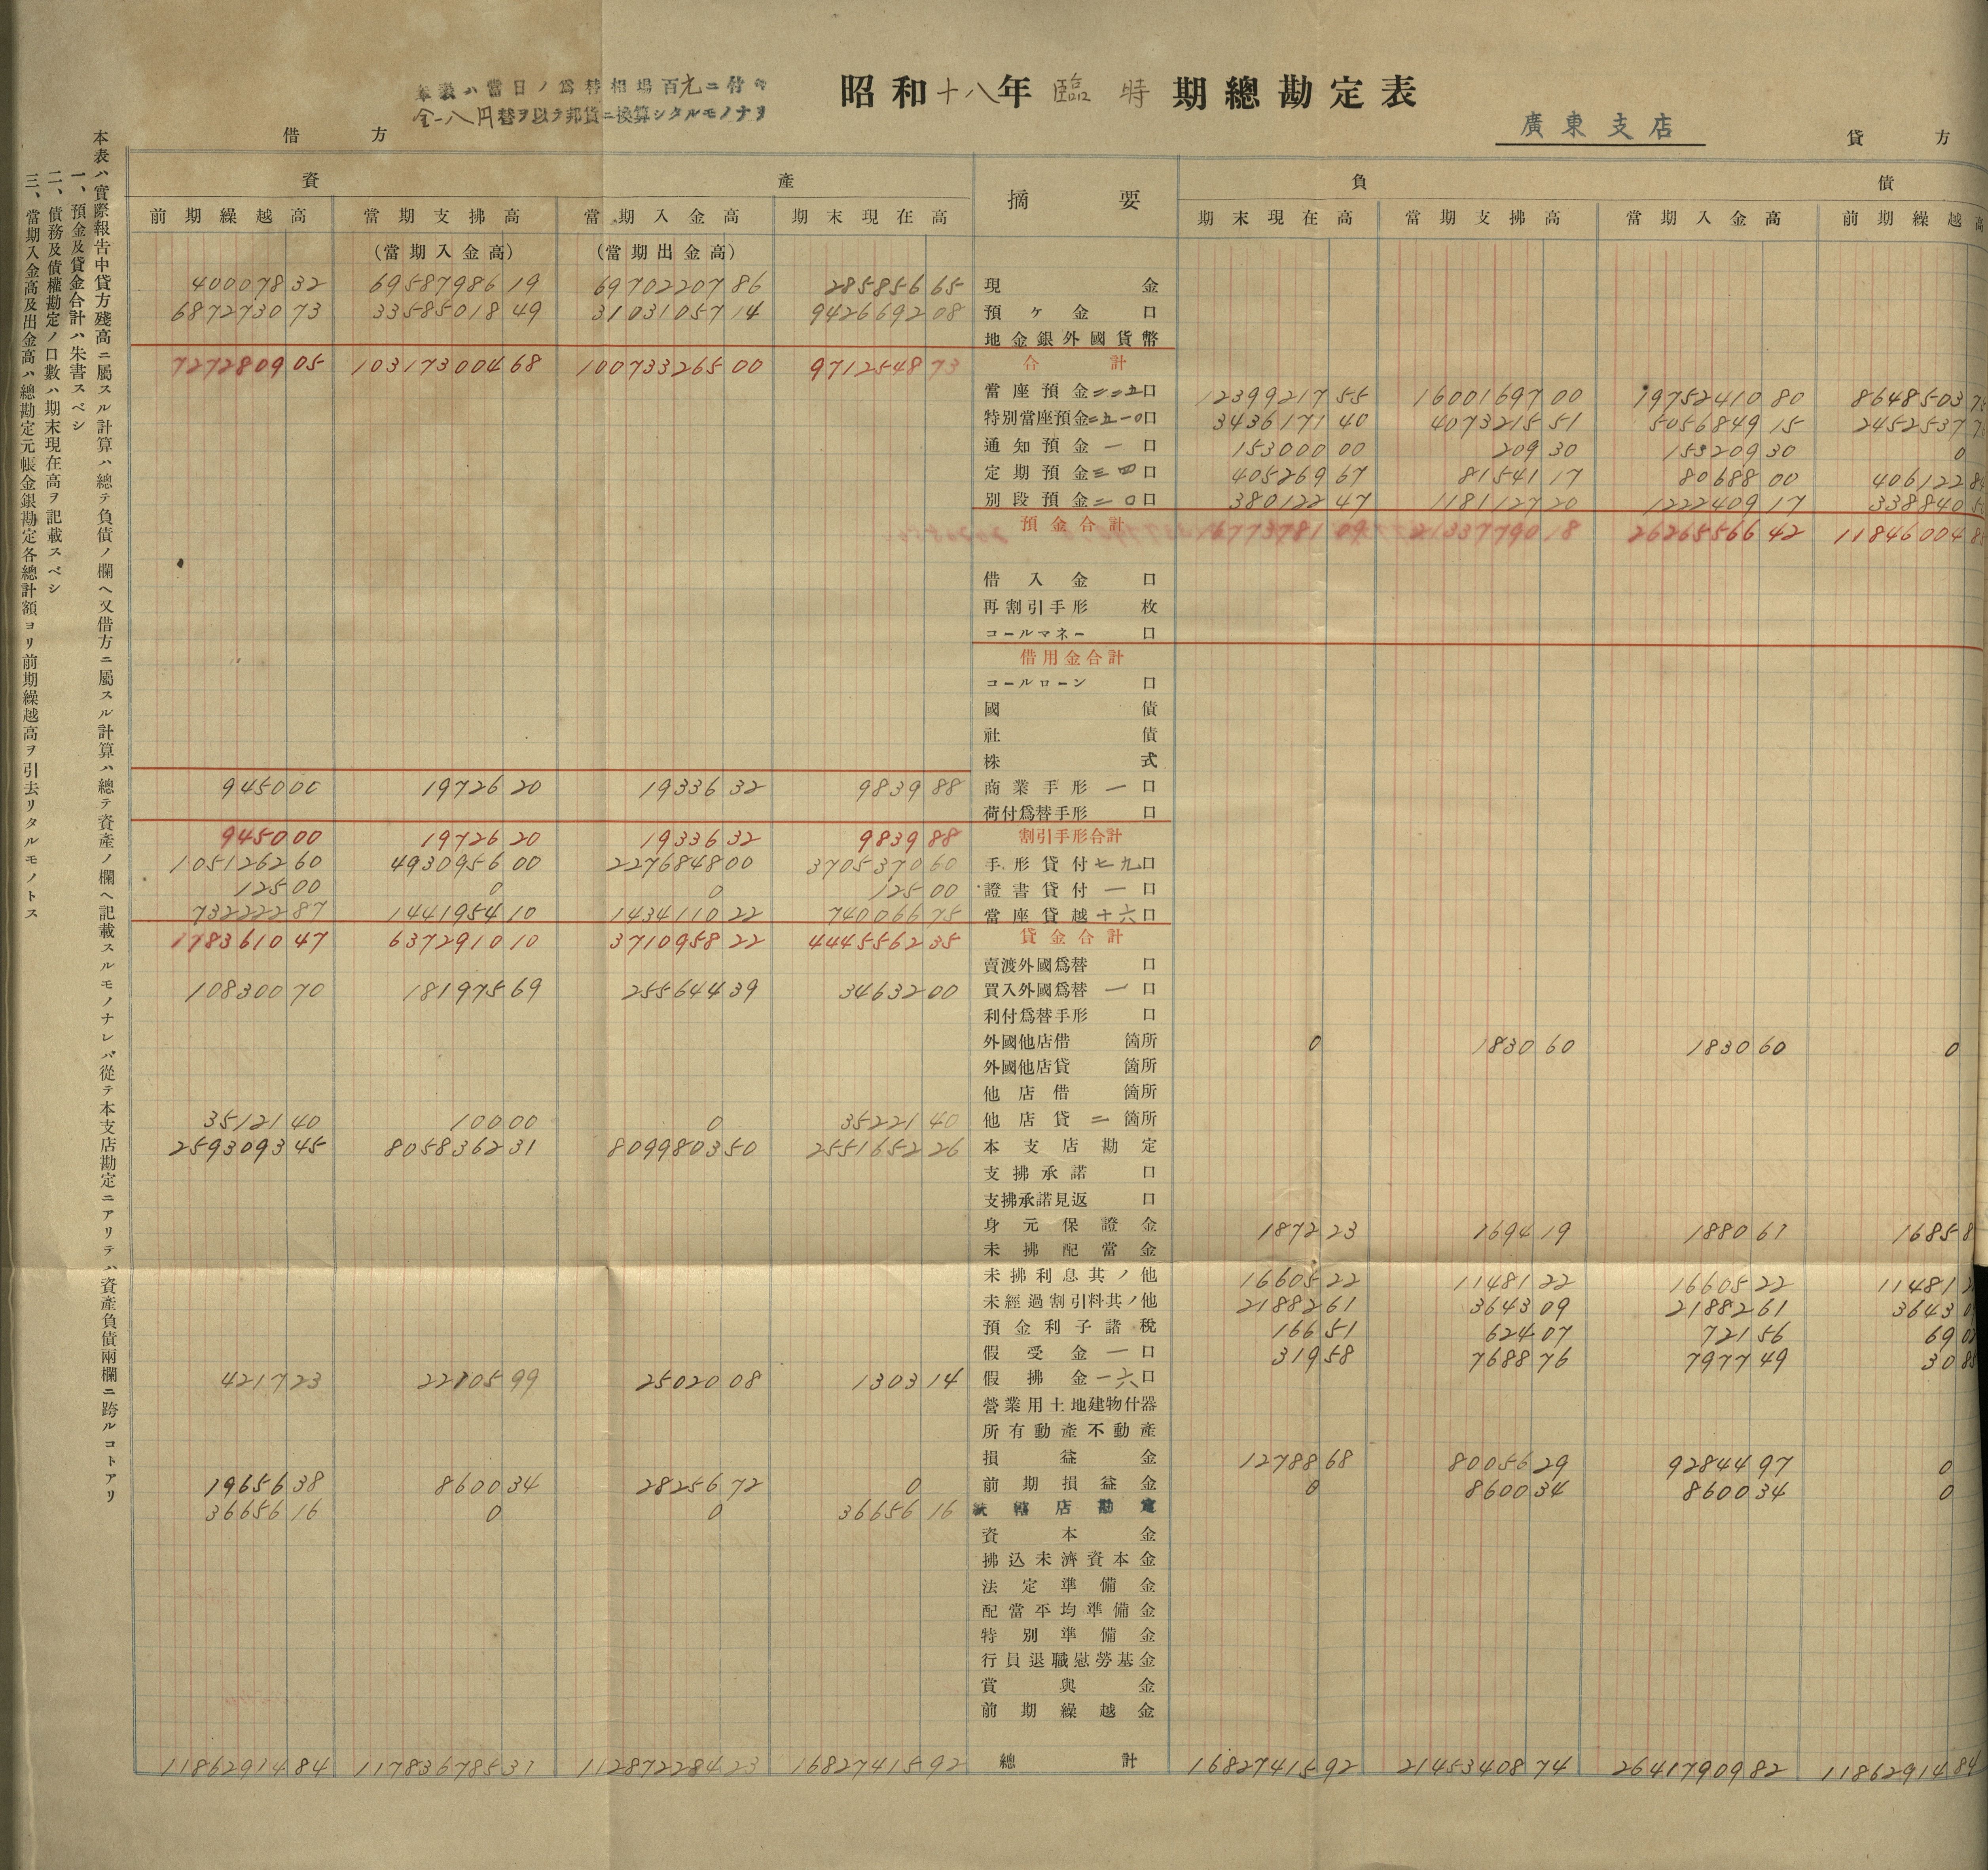 昭和十八年臨時期總勘定表
本表ハ當日ノ爲替相場百元ニ付キ
金一八円替ヲ以テ邦貨ニ換算シタルモノナリ
廣東支店
借方 貸方
資產 摘要 負債
前期繰越高 當期支拂高 當期入金高 期末現在高 期末現在高 當期支拂高 當期入金高 前期繰越高
(當期入金高) (當期出金高)
400078 32 69587986 19 69702207 86 285856 65 現金
6872730 73 33585018 49 31031057 14 9426692 08 預ケ金 口
地金銀外國貨幣
7272809 05 103173004 68 100733265 00 9712548 73 合計
當座預金二二五口 12399217 55 16001697 00 19752410 80 8648503 75
特別當座預金二五一〇口 3436171 40 4073215 51 5056849 15 2452537
通知預金一口 153000 00 209 30 153209 30 0
定期預金三四口 405269 67 81541 17 80688 00 406122 84
別段預金二〇口 380122 47 1181127 20 1222409 17 338840 50
預金合計 16773781 09 21337790 18 26265566 42 11846004 85
借入金 口
再割引手形 枚
コールマネー 口
借用金合計
コールローン 口
國債
社債
株式
9450 00 19726 20 19336 32 9839 88 商業手形一口
荷付爲替手形 口
9450 00 19726 20 19336 32 9839 88 割引手形合計
1051262 60 4930956 00 2276848 00 3705370 60 手形貸付七九口
125 00 0 0 125 00 證書貸付一口
732222 87 1441954 10 1434110 22 740066 75 當座貸越十六口
1783610 47 6372910 10 3710958 22 4445562 35 貸金合計
賣渡外國爲替 口
108300 70 181975 69 255644 39 34632 00 買入外國爲替一口
利付爲替手形 口
外國他店借 箇所 0 1830 60 1830 60 0
外國他店貸 箇所
他店借 箇所
35121 40 100 00 0 35221 40 他店貸二箇所
2593093 45 8058362 31 8099803 50 2551652 26 本支店勘定
支拂承諾 口
支拂承諾見返 口
身元保證金 1872 23 1694 19 1880 61 1685 8
未拂配當金
未拂利息其ノ他 16605 22 11481 22 16605 22 11481 2
未經過割引料其ノ他 21882 61 3643 09 21882 61 3643 0
預金利子諸稅 166 51 624 07 721 56 69 02
假受金一口 319 58 7688 76 7977 49 30 85
4217 23 22105 99 25020 08 1303 14 假拂金一六口
營業用土地建物什器
所有動產不動產
損益金 12788 68 80056 29 92844 97 0
19656 38 8600 34 28256 72 0 前期損益金 0 8600 34 8600 34 0
36656 16 0 0 36656 16 統轄店勘定
資本金
拂込未濟資本金
法定準備金
配當平均準備金
特別準備金
行員退職慰勞基金
賞與金
前期繰越金
11862914 84 117836785 31 112872284 23 16827415 92 總計 16827415 92 21453408 74 26417909 82 11862914 84
本表ハ實際報告中貸方殘高ニ屬スル計算ハ總テ負債ノ欄ヘ又借方ニ屬スル計算ハ總テ資產ノ欄ヘ記載スルモノナレバ從テ本支店勘定ニアリテハ資產負債兩欄ニ跨ルコトアリ
一、預金及貸金合計ハ朱書スベシ
二、債務及債權勘定ノ口數ハ期末現在高ヲ記載スベシ
三、當期入金高及出金高ハ總勘定元帳金銀勘定各總計額ヨリ前期繰越高ヲ引去リタルモノトス